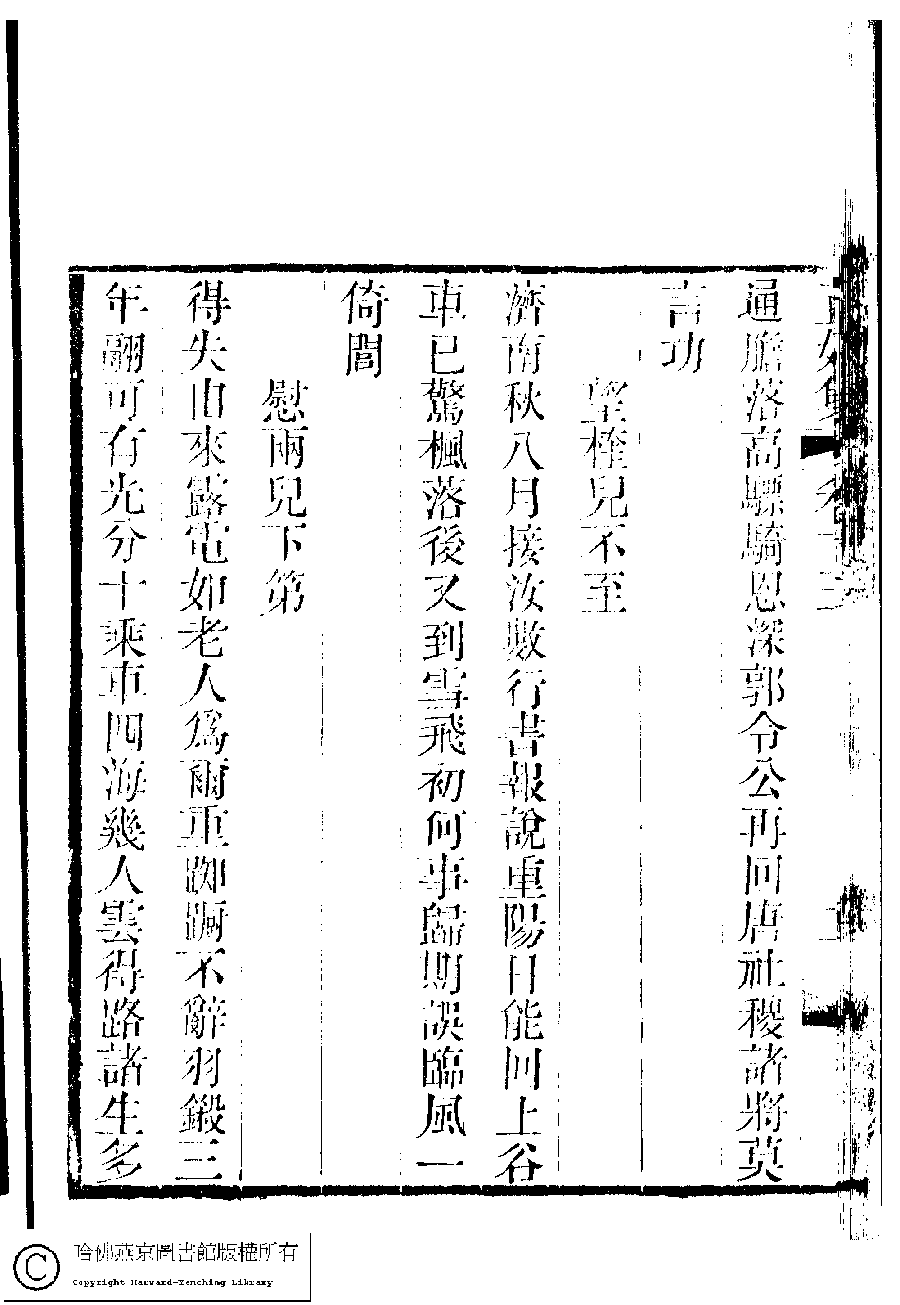 通膽落高驃騎恩深郭令公再回唐社稷諸將莫
言功
望榁兒不至
濟南秋八月接汝數行書報說重陽日能回上谷
車已驚楓落後又到雪飛初何事歸期誤臨風一
倚閭
慰兩兒下第
得失由來露電如老人爲爾重踟躕不辭羽鎩三
年翮可有光分十乘車四海幾人雲得路諸生多
哈佛燕京圖書館版權所有
Copyright Harvard-Yenching Library